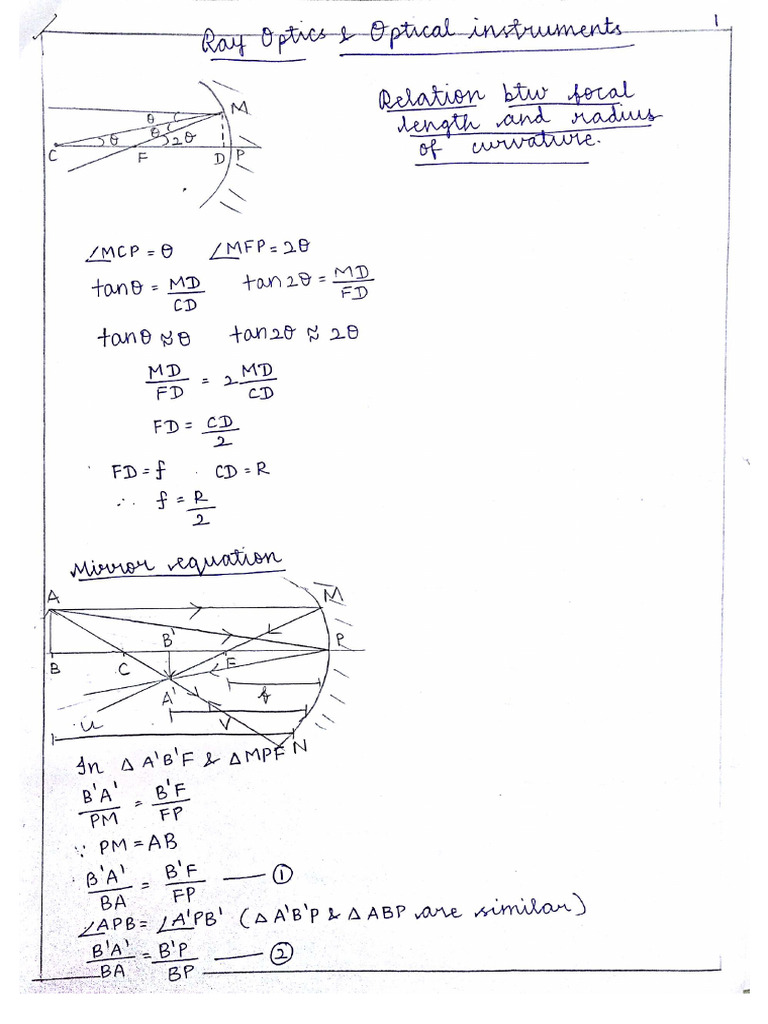 Ray Optics & Optical instruments
1
Relation btw focal
length and radius
of curvature.
M
θ
θ
θ
2θ
C
F
D
P
∠MCP = θ   ∠MFP = 2θ
tanθ = MD/CD   tan2θ = MD/FD
tanθ ≈ θ   tan2θ ≈ 2θ
MD/FD = 2 MD/CD
FD = CD/2
FD = f   CD = R
∴ f = R/2
Mirror equation
A
M
B'
P
B
C
F
A'
f
u
V
N
In Δ A'B'F & Δ MPF
B'A'/PM = B'F/FP
∵ PM = AB
B'A'/BA = B'F/FP —— ①
∠APB = ∠A'PB' (Δ A'B'P & Δ ABP are similar)
B'A'/BA = B'P/BP —— ②